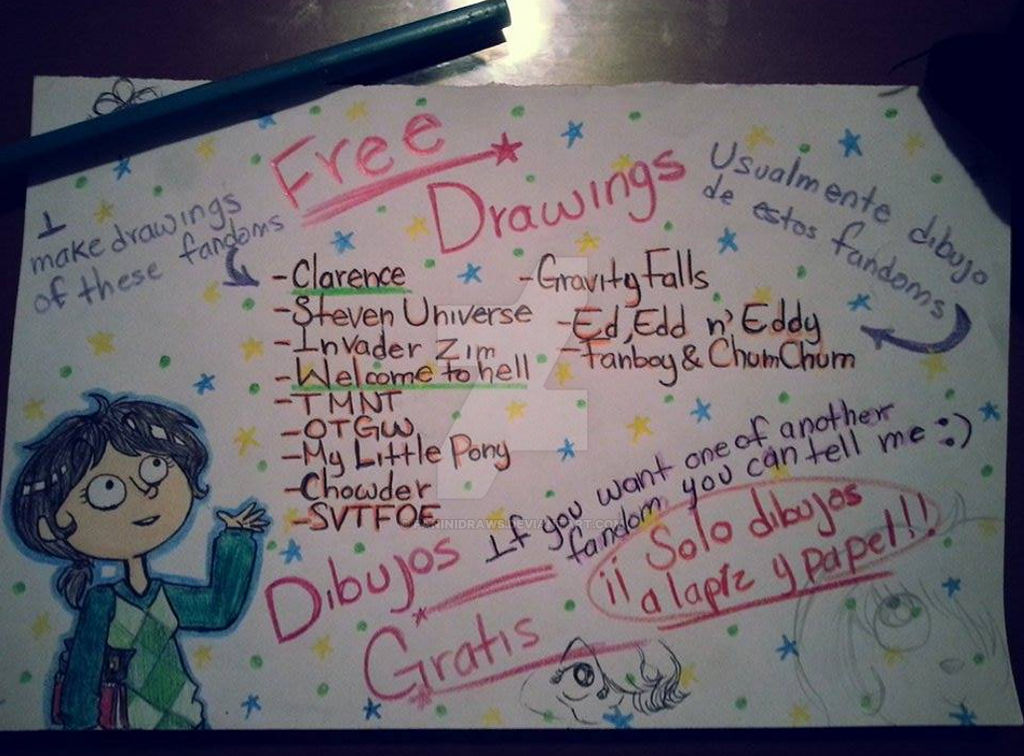 Free
Drawings
I
make drawings
of these fandoms
Usualmente dibujo
de estos fandoms
-Clarence
-Steven Universe
-Invader Zim
-Welcome to hell
-TMNT
-OTGW
-My Little Pony
-Chowder
-SVTFOE
-Gravity Falls
-Ed, Edd n' Eddy
-Fanboy & ChumChum
If you want one of another
fandom you can tell me :)
Dibujos
Gratis
Solo dibujos
¡¡ a lapíz y papel!!